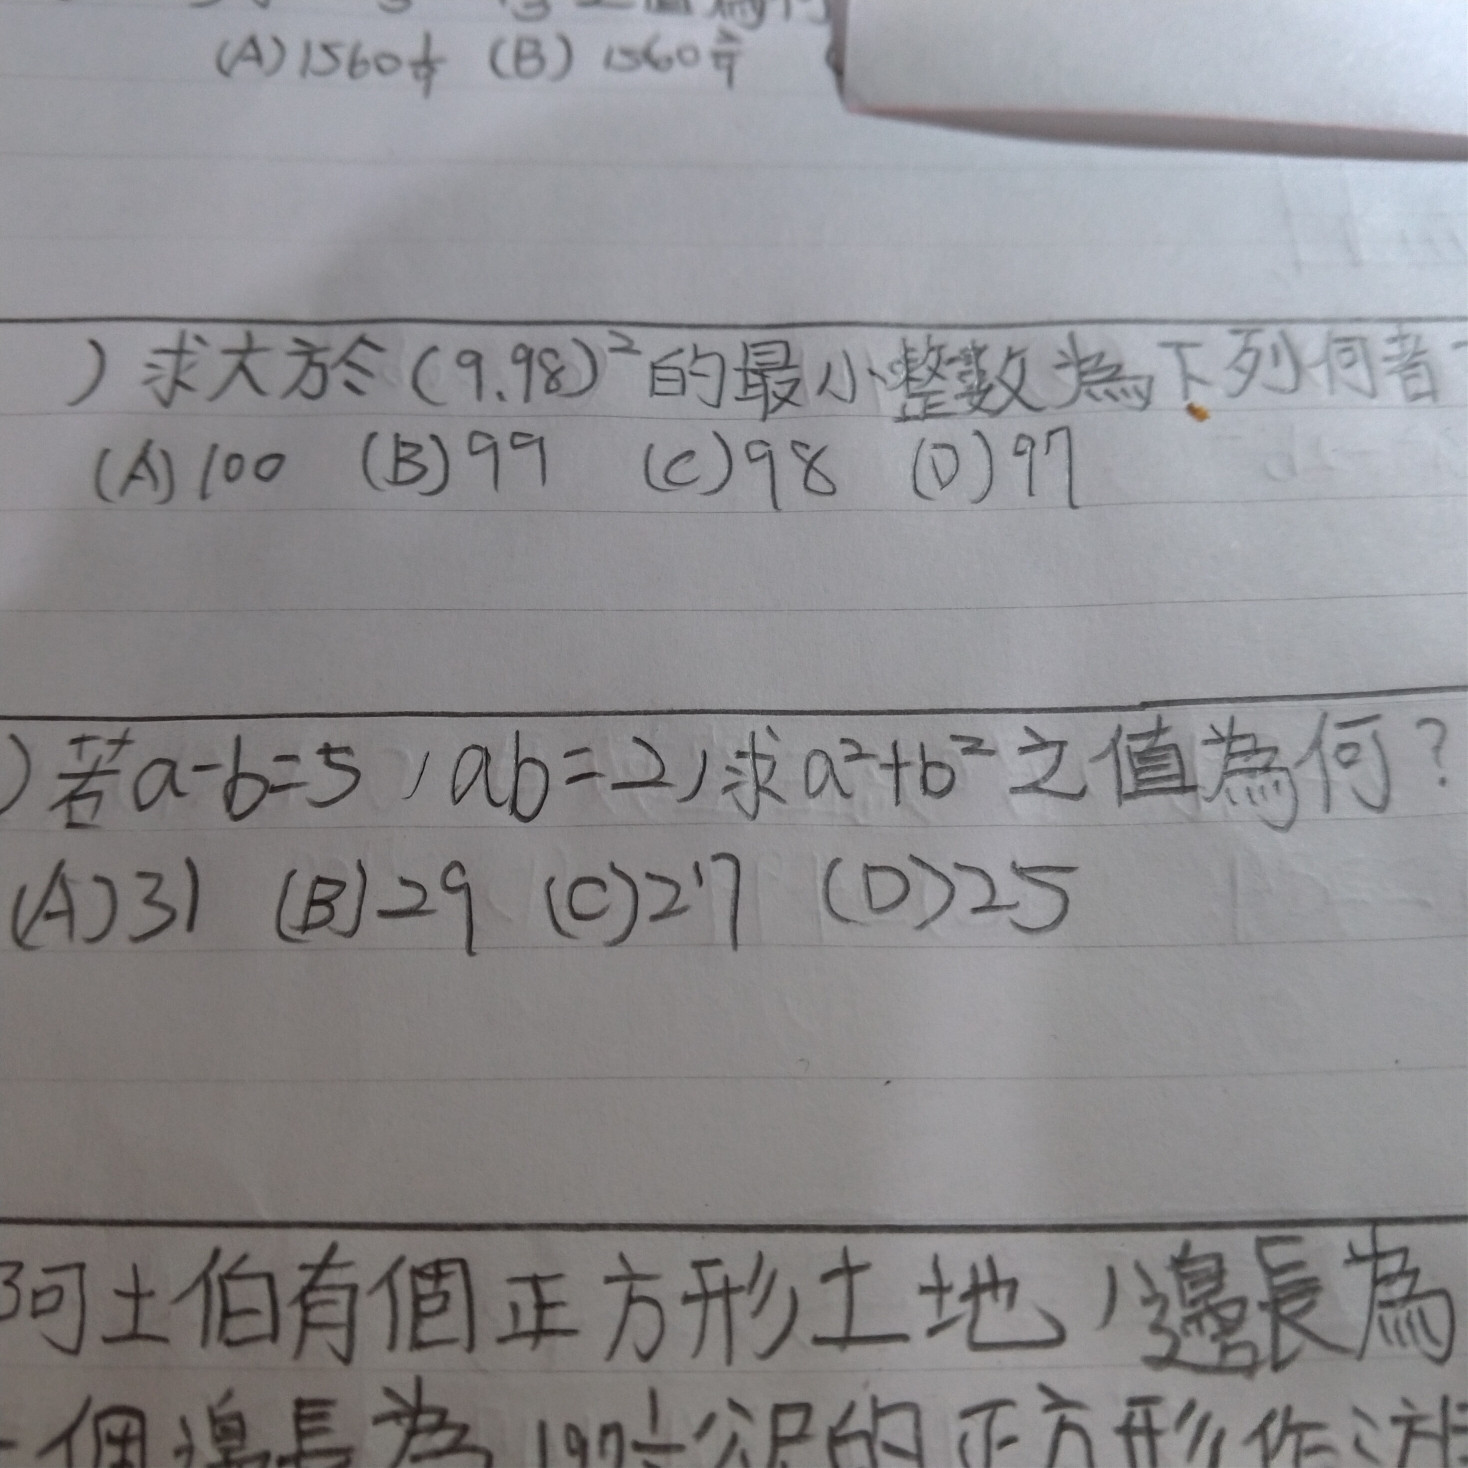 (A)1560 1/9 (B) 1560
)求大於(9.98)²的最小整數為下列何者
(A)100 (B)99 (C)98 (D)97
)若a-b=5,ab=2,求a²+b²之值為何?
(A)31 (B)29 (C)27 (D)25
阿土伯有個正方形土地,邊長為
個邊長為 公尺的正方形作